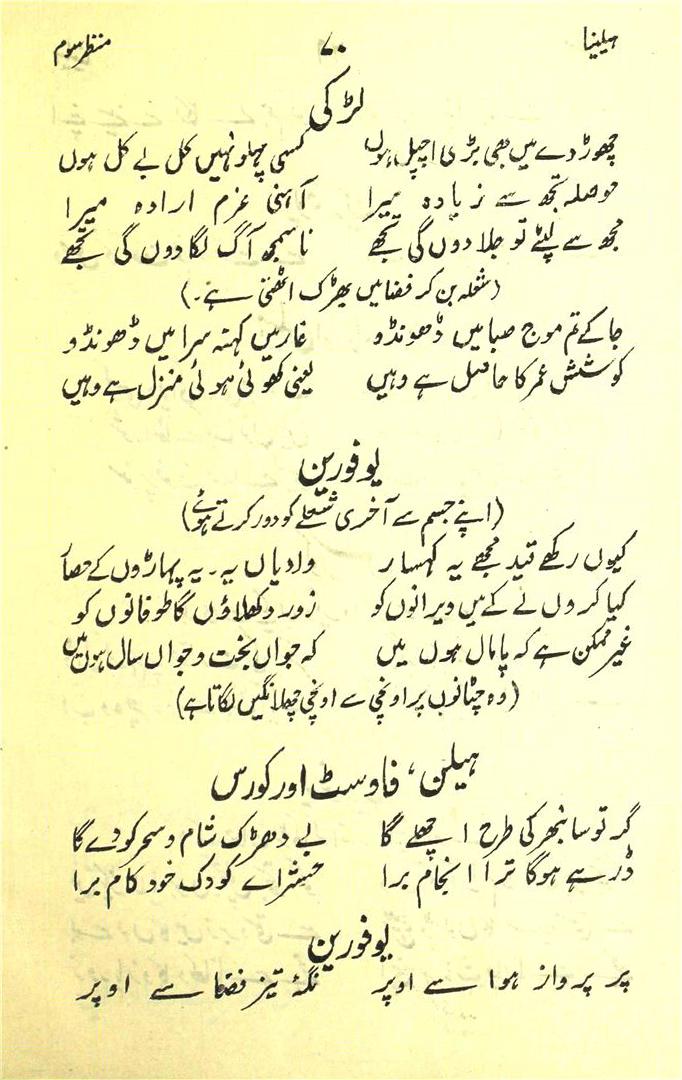 ہیلینا ۷۰ منظر سوم
لڑکی
چھوڑ دے میں بھی بڑی اچپل ہوں کسی پہلو نہیں کل بے کل ہوں
حوصلہ تجھ سے زیادہ میرا آہنی عزم ارادہ میرا
مجھ سے لپٹے تو جلا دوں گی تجھے ناسمجھ آگ لگا دوں گی تجھے
(شعلہ بن کر فضا میں بھڑک اٹھتی ہے۔)
جا کے تم موج صبا میں ڈھونڈو غار میں کہنہ سرا میں ڈھونڈو
کوشش عمر کا حاصل ہے وہیں یعنی کھوئی ہوئی منزل ہے وہیں
یوفورین
(اپنے جسم سے آخری شعلے کو دور کرتے ہوئے)
کیوں رکھے قید مجھے یہ کہسار وادیاں یہ ۔ یہ پہاڑوں کے حصار
کیا کروں لے کے میں ویرانوں کو زور دکھلاؤں گا طوفانوں کو
غیر ممکن ہے کہ پامال ہوں میں کہ جواں بخت و جواں سال ہوں میں
(وہ چٹانوں پر اونچی سے اونچی چھلانگیں لگاتا ہے)
ہیلن، فاوسٹ اور کورس
گر تو سانبھر کی طرح اچھلے گا بے دھڑک شام و سحر کودے گا
ڈر ہے ہوگا ترا انجام برا حشر اے کودک خود کام برا
یوفورین
پر پرواز ہوا سے اوپر نگۂ تیز فضا سے اوپر